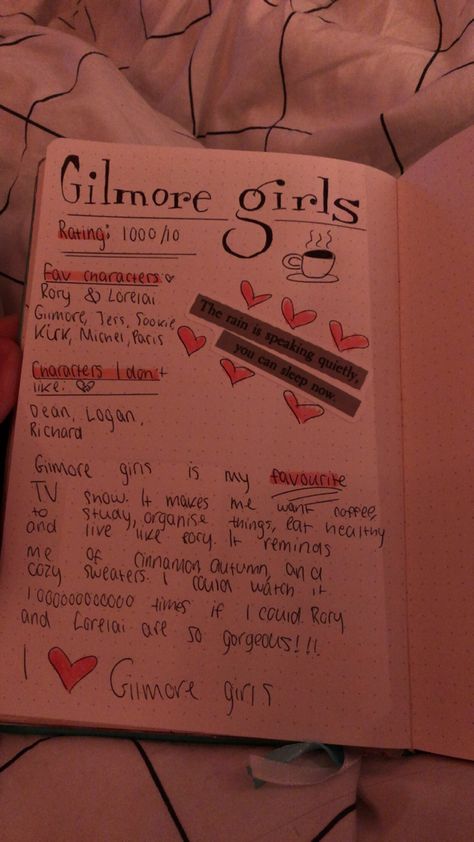 Gilmore girls
Rating: 1000/10
Fav characters:
Rory & Lorelai
Gilmore, Jess, Sookie
Kirk, Michel, Paris
The rain is speaking quietly,
you can sleep now.
Characters I don't
like:
Dean, Logan,
Richard
Gilmore girls is my favourite
TV show. It makes me want coffee,
to study, organise things, eat healthy
and live like rory. It reminds
me of cinnamon, autumn, and
cozy sweaters. I could watch it
100000000000 times if I could. Rory
and Lorelai are so gorgeous!!!
I ♥ Gilmore girls